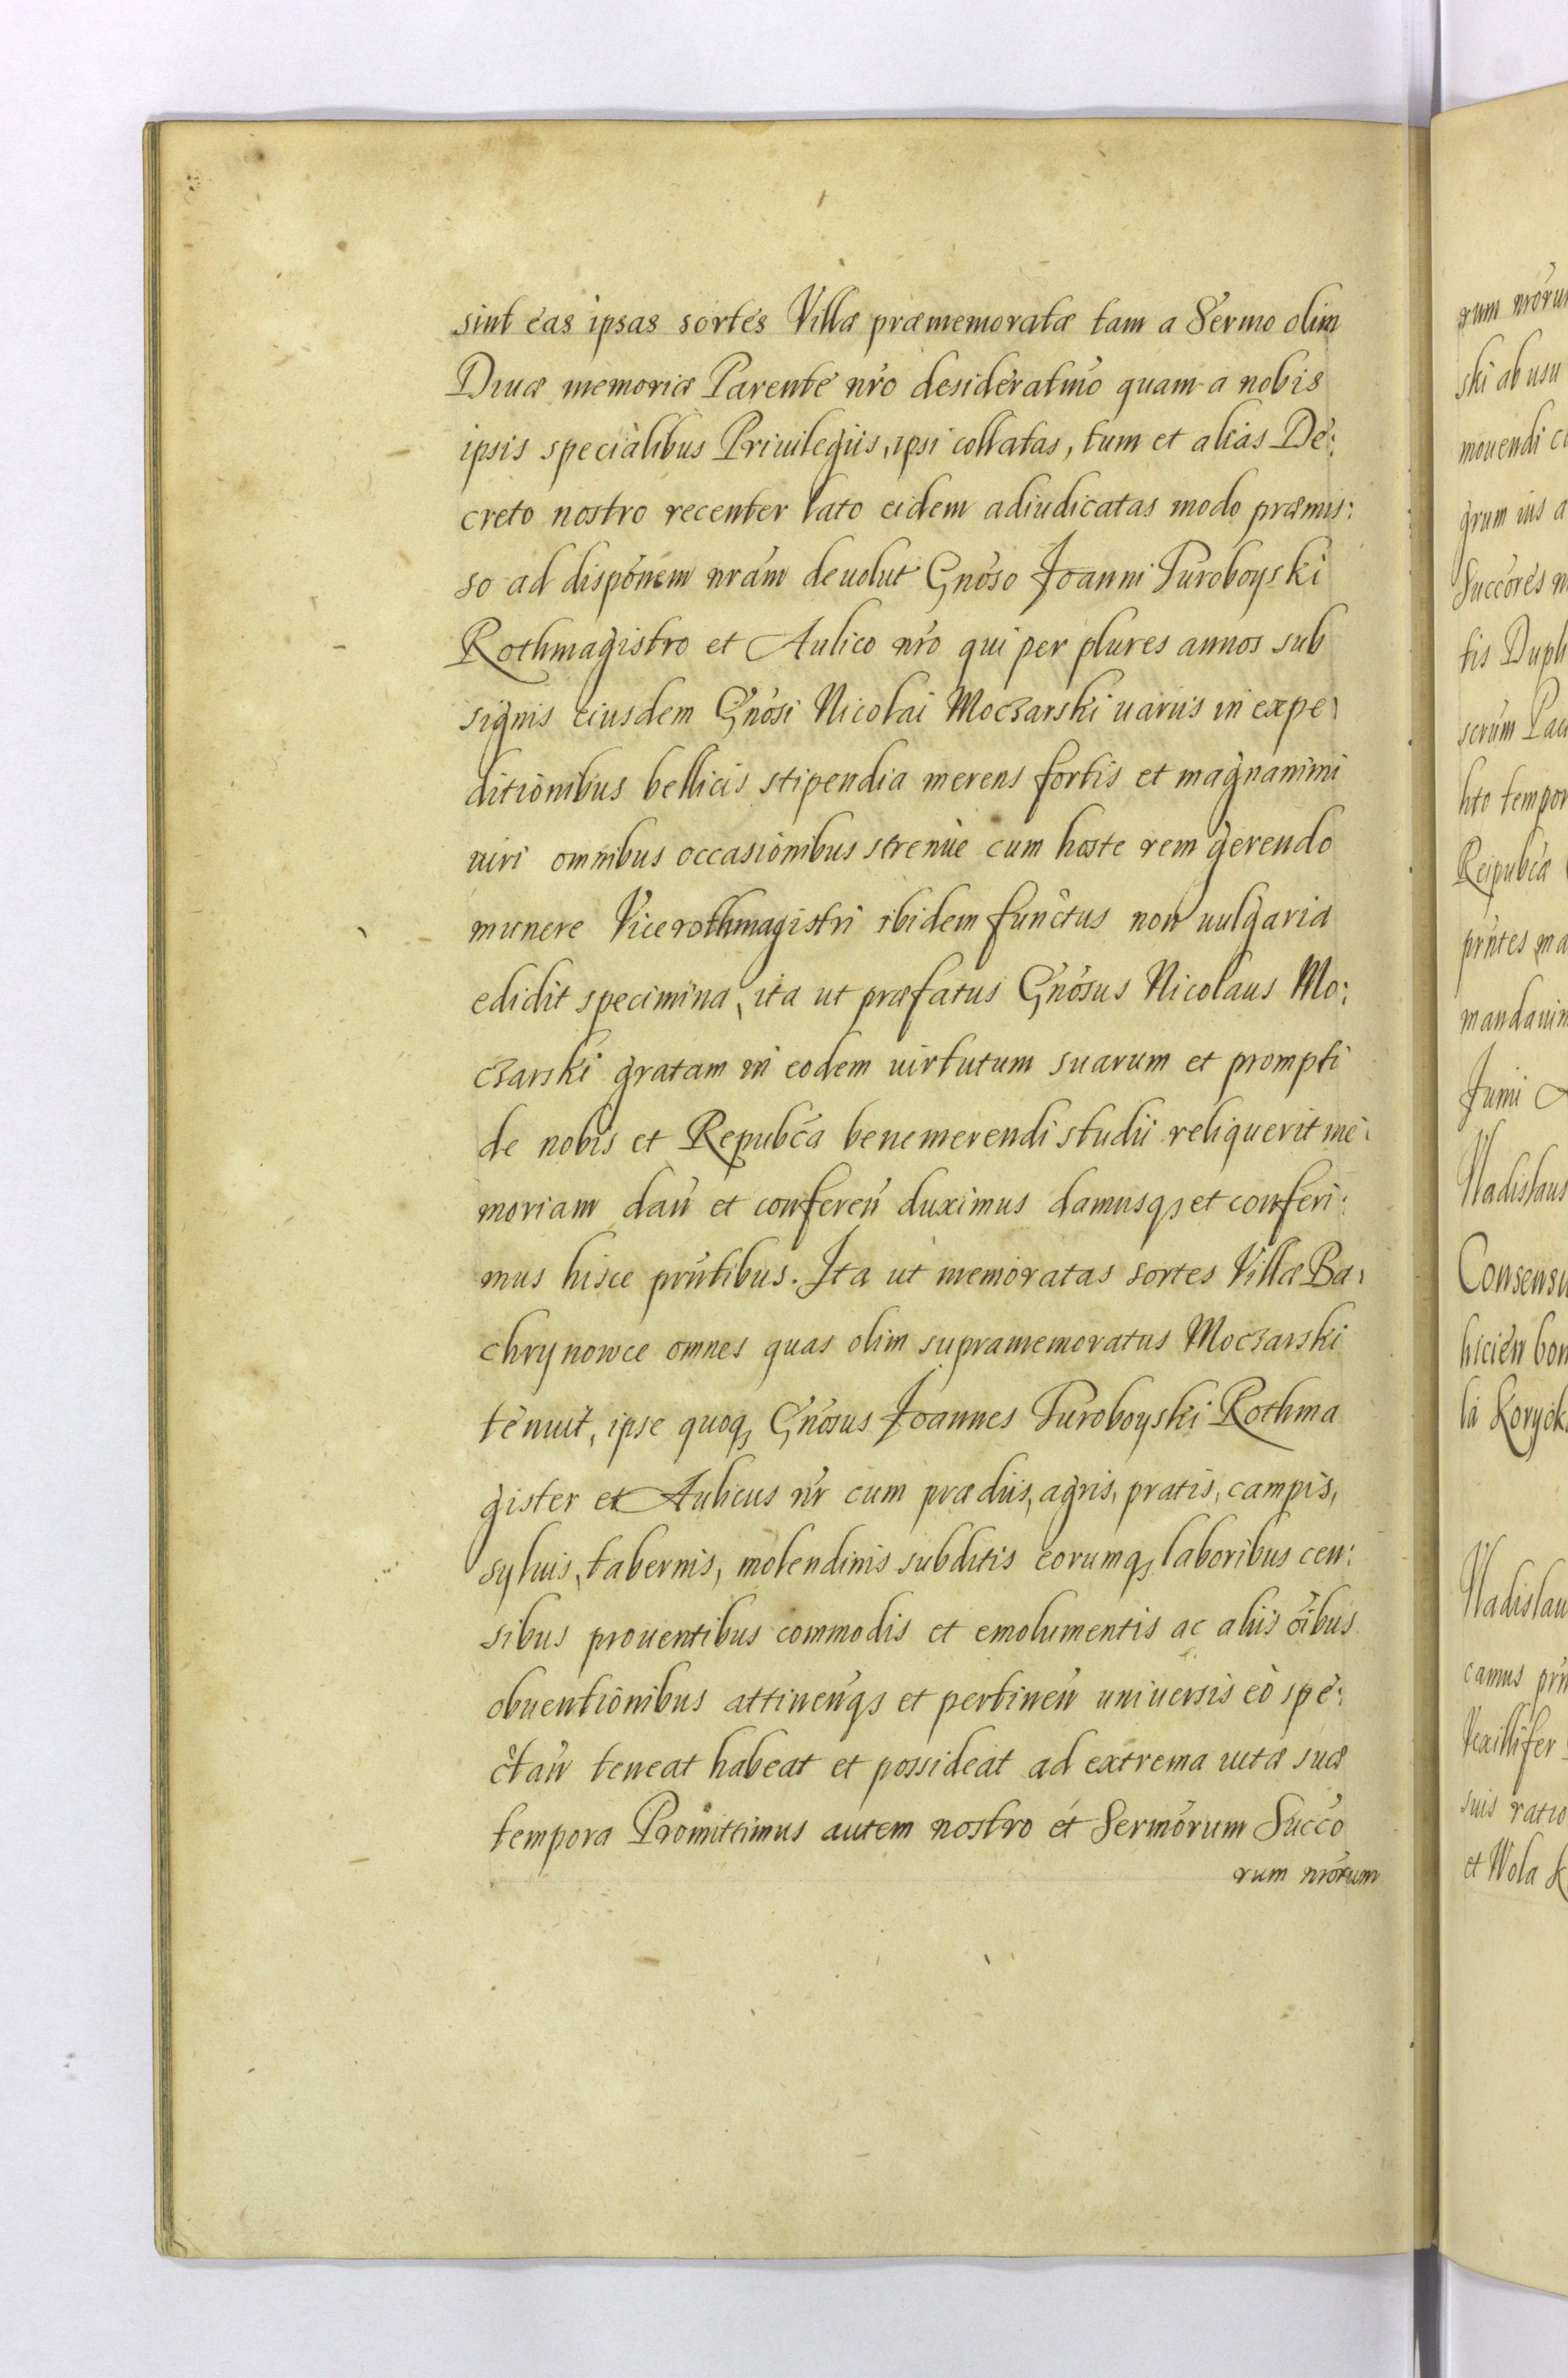 sint eas ipsas sortes Villæ præmemoratæ tam a Sermo olim
Diuæ memoriæ Parente nro desideratmo quam a nobis
ipsis specialibus Priuilegiis, ipsi collatas, tum et alias De:
creto nostro recenter lato eidem adiudicatas modo præmis:
so ad disponem nram deuolut Gnoso Joanni Turoboyski
Rothmagistro et Aulico nro qui per plures annos sub
signis eiusdem Gnosi Nicolai Moczarski uariis in expe
ditionibus bellicis stipendia merens fortis et magnanimi
uiri omnibus occasionibus strenue cum hoste rem gerendo
munere Vicerothmagistri ibidem functus non uulgaria
edidit specimina, ita ut præfatus Gnosus Nicolaus Mo:
czarski gratam in eodem uirtutum suarum et prompti
de nobis et Republca benemerendi studii reliquerit me:
moriam dan et conferen duximus damusqs et conferi:
mus hisce prntibus. Ita ut memoratas sortes Villæ Ba:
chrynowce omnes quas olim supramemoratus Moczarski
tenuit, ipse quoqs Gnosus Joannes Turoboyski Rothma
gister et Aulicus nr cum prædiis, agris, pratis, campis,
syluis, tabernis, molendinis subditis eorumqs laboribus cen:
sibus prouentibus commodis et emolumentis ac aliis oibus
obuentionibus attinenqs et pertinen uniuersis eò spe:
ctan teneat habeat et possideat ad extrema uitæ suæ
tempora Promittimus autem nostro et Sermorum Succo
rum nrorum
rum nroru
ski ab usu
mouendi
grum ius a
Succores
tis Duph
hto tempor
Reipublcæ
prntes ma
mandauim
Junii
Vladislaus
Consensu
hicien bon
la Koryck
Vladislau
camus prn
Vexillifer
suis ratio
et Wola